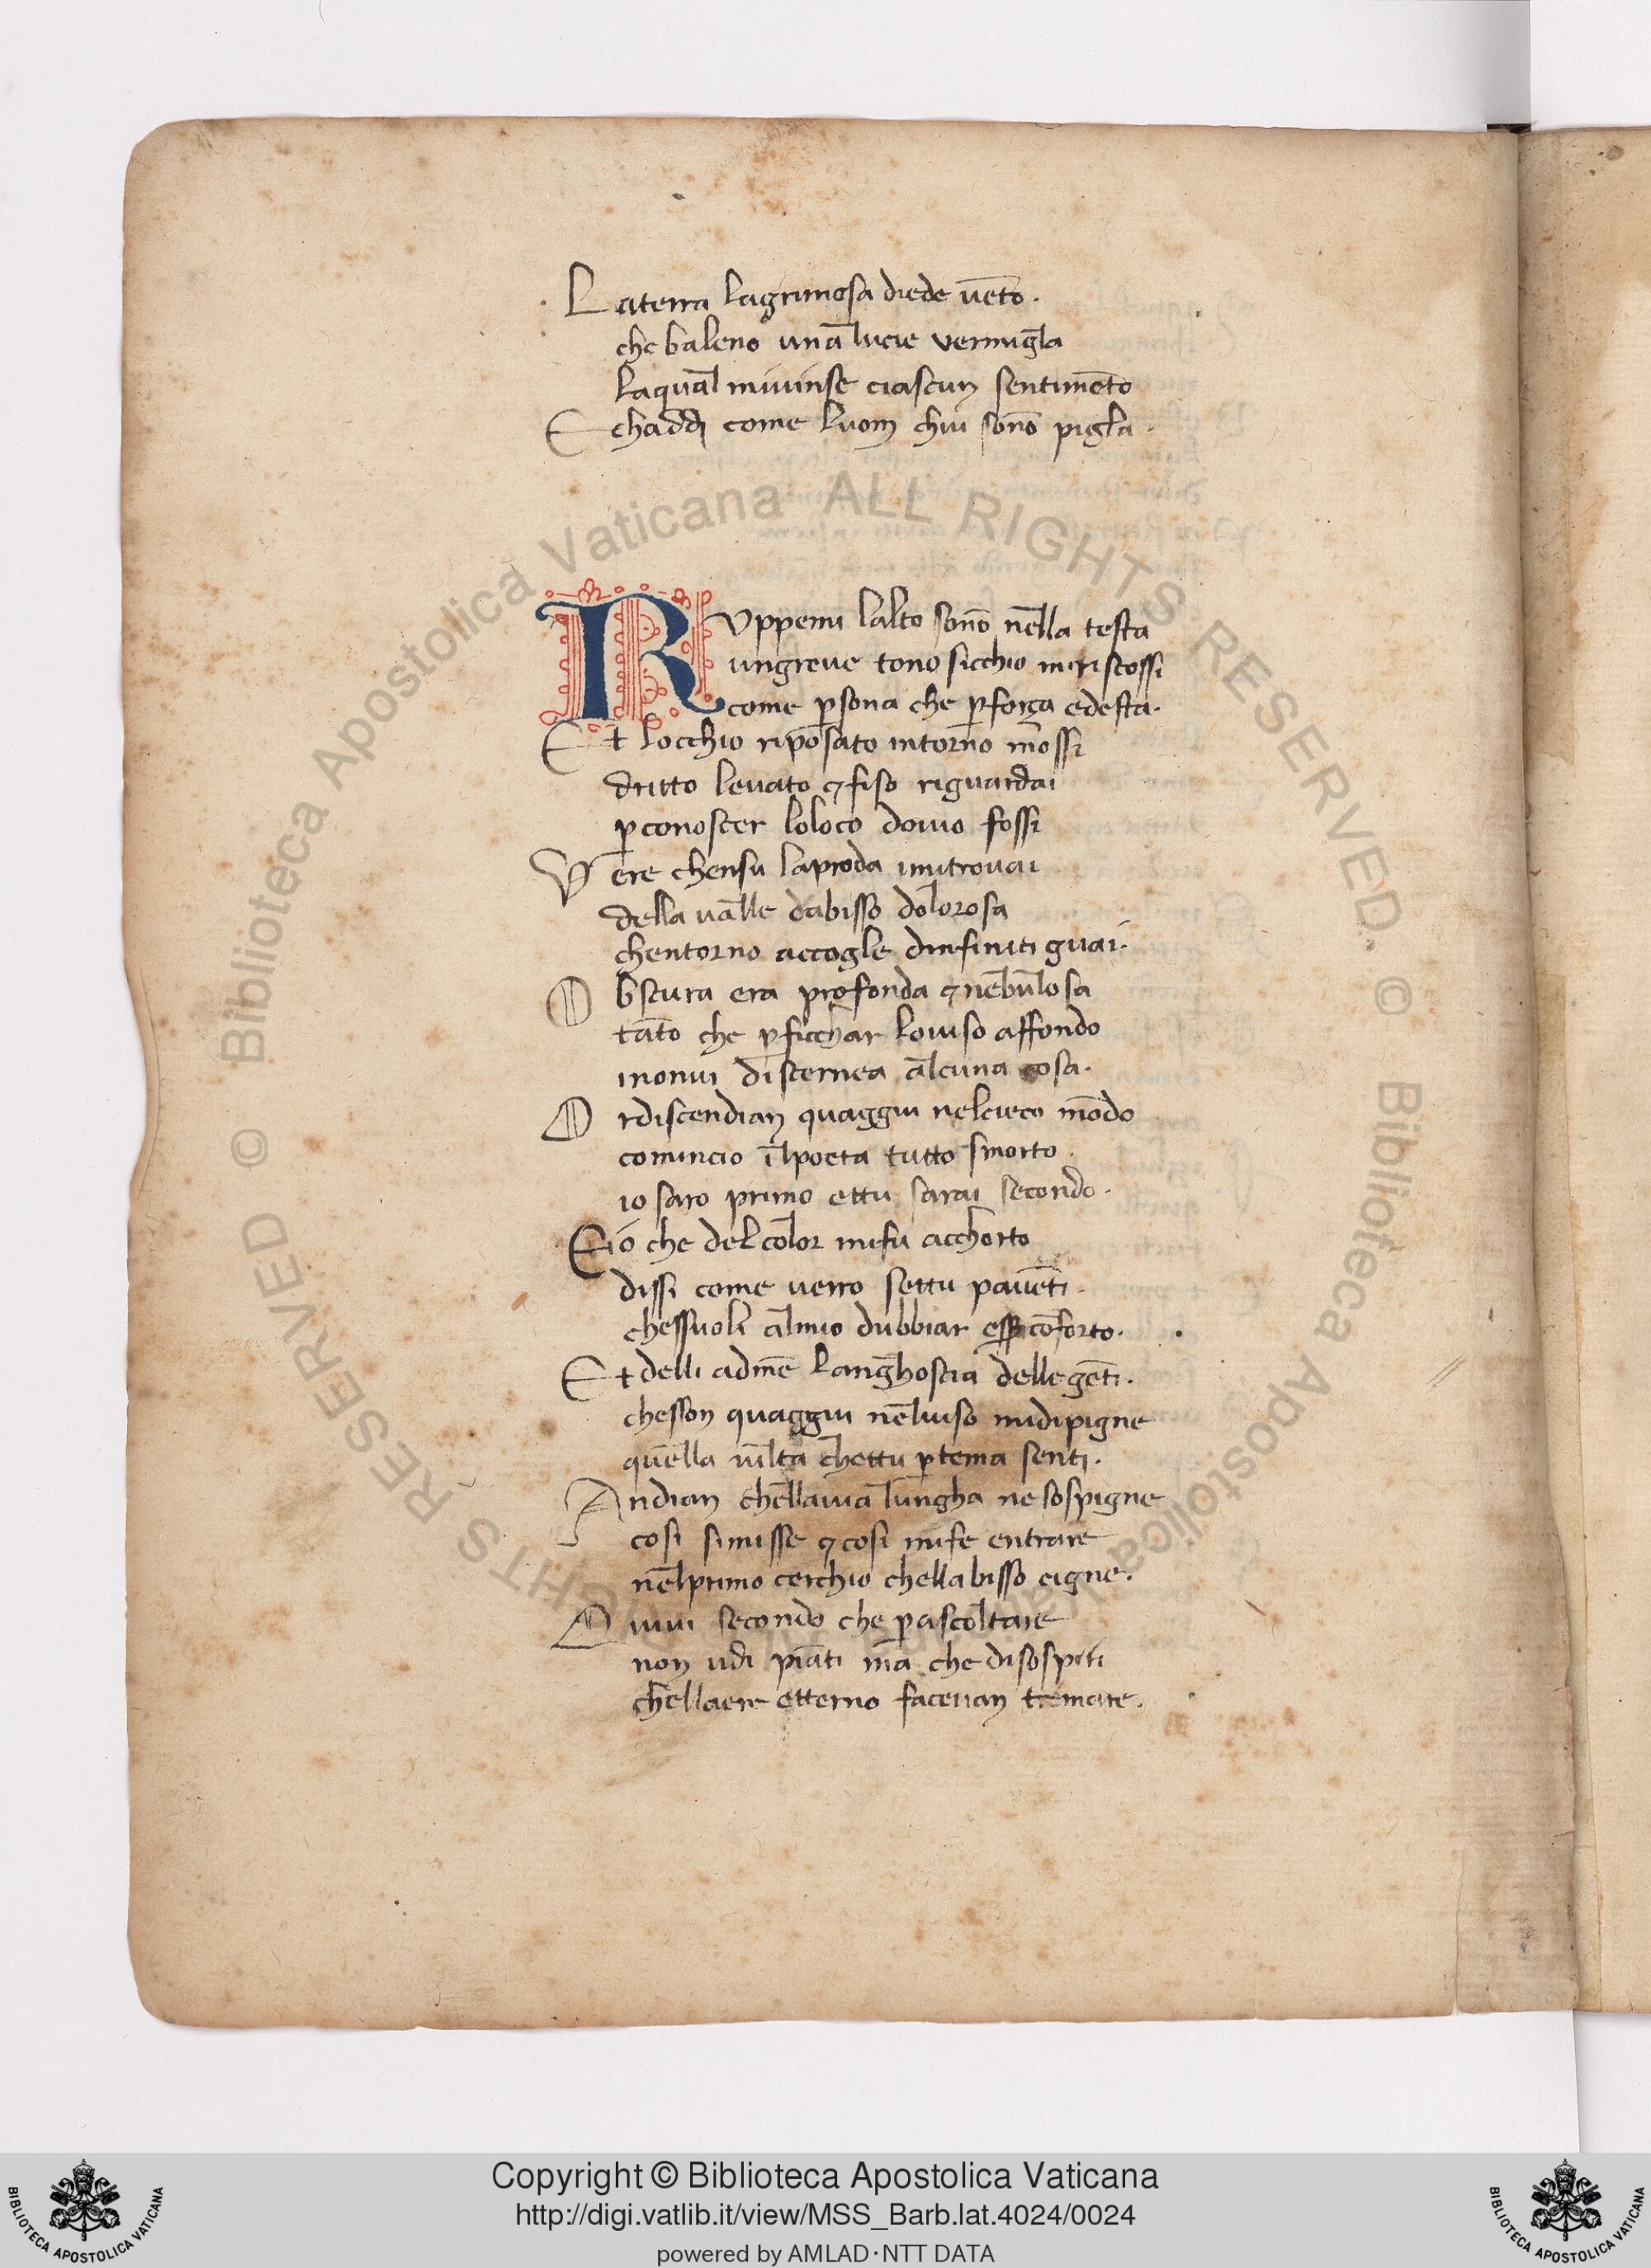 Laterra lagrimosa diede vēto.
che baleno una lucie vermigla
laqual mivinse ciascun sentimēto
Echaddi come luom chui sono pigla.
Ruppemi lalto sono nella testa
ungreue tono sicchio miriscossi
come ꝑsona che ꝑforça edesta.
Et locchio riposato intorno mossi
dritto leuato ⁊ fiso riguardai
ꝑconoscer loloco douio fossi
Vere chensu laproda mitrouai
della ualle dabisso dolorosa
chentorno accogle dinfiniti guai.
Obscura era profonda ⁊ nebulosa
tāto che ꝑficchar louiso affondo
inonui discernea alcuna cosa.
Ordiscendian quaggiu nelcieco mōdo
comincio ilpoeta tutto smorto.
io saro primo ettu sarai secondo.
Eio che del color mifu acchorto
dissi come uerro settu pauēti.
chessuoli almio dubbiar conforto.
Et delli adme langhoscia dellegēti.
chesson quaggiu neluiso midipigne
quella chettu ꝑtema senti.
Andian chellauia lungha ne sospigne
cosi simisse ⁊ cosi mife entrare
nelprimo cerchio chellabisso cigne.
Quiui secondo che ꝑascoltare
non udi piāti ma che disospiri
chellaere etterno faceuan tremare.
© Biblioteca Apostolica Vaticana ALL RIGHTS RESERVED. © Biblioteca Apostolica Vaticana ALL RIGHTS RESERVED
BIBLIOTECA APOSTOLICA VATICANA
Copyright © Biblioteca Apostolica Vaticana
http://digi.vatlib.it/view/MSS_Barb.lat.4024/0024
powered by AMLAD·NTT DATA
BIBLIOTECA APOSTOLICA VATICANA